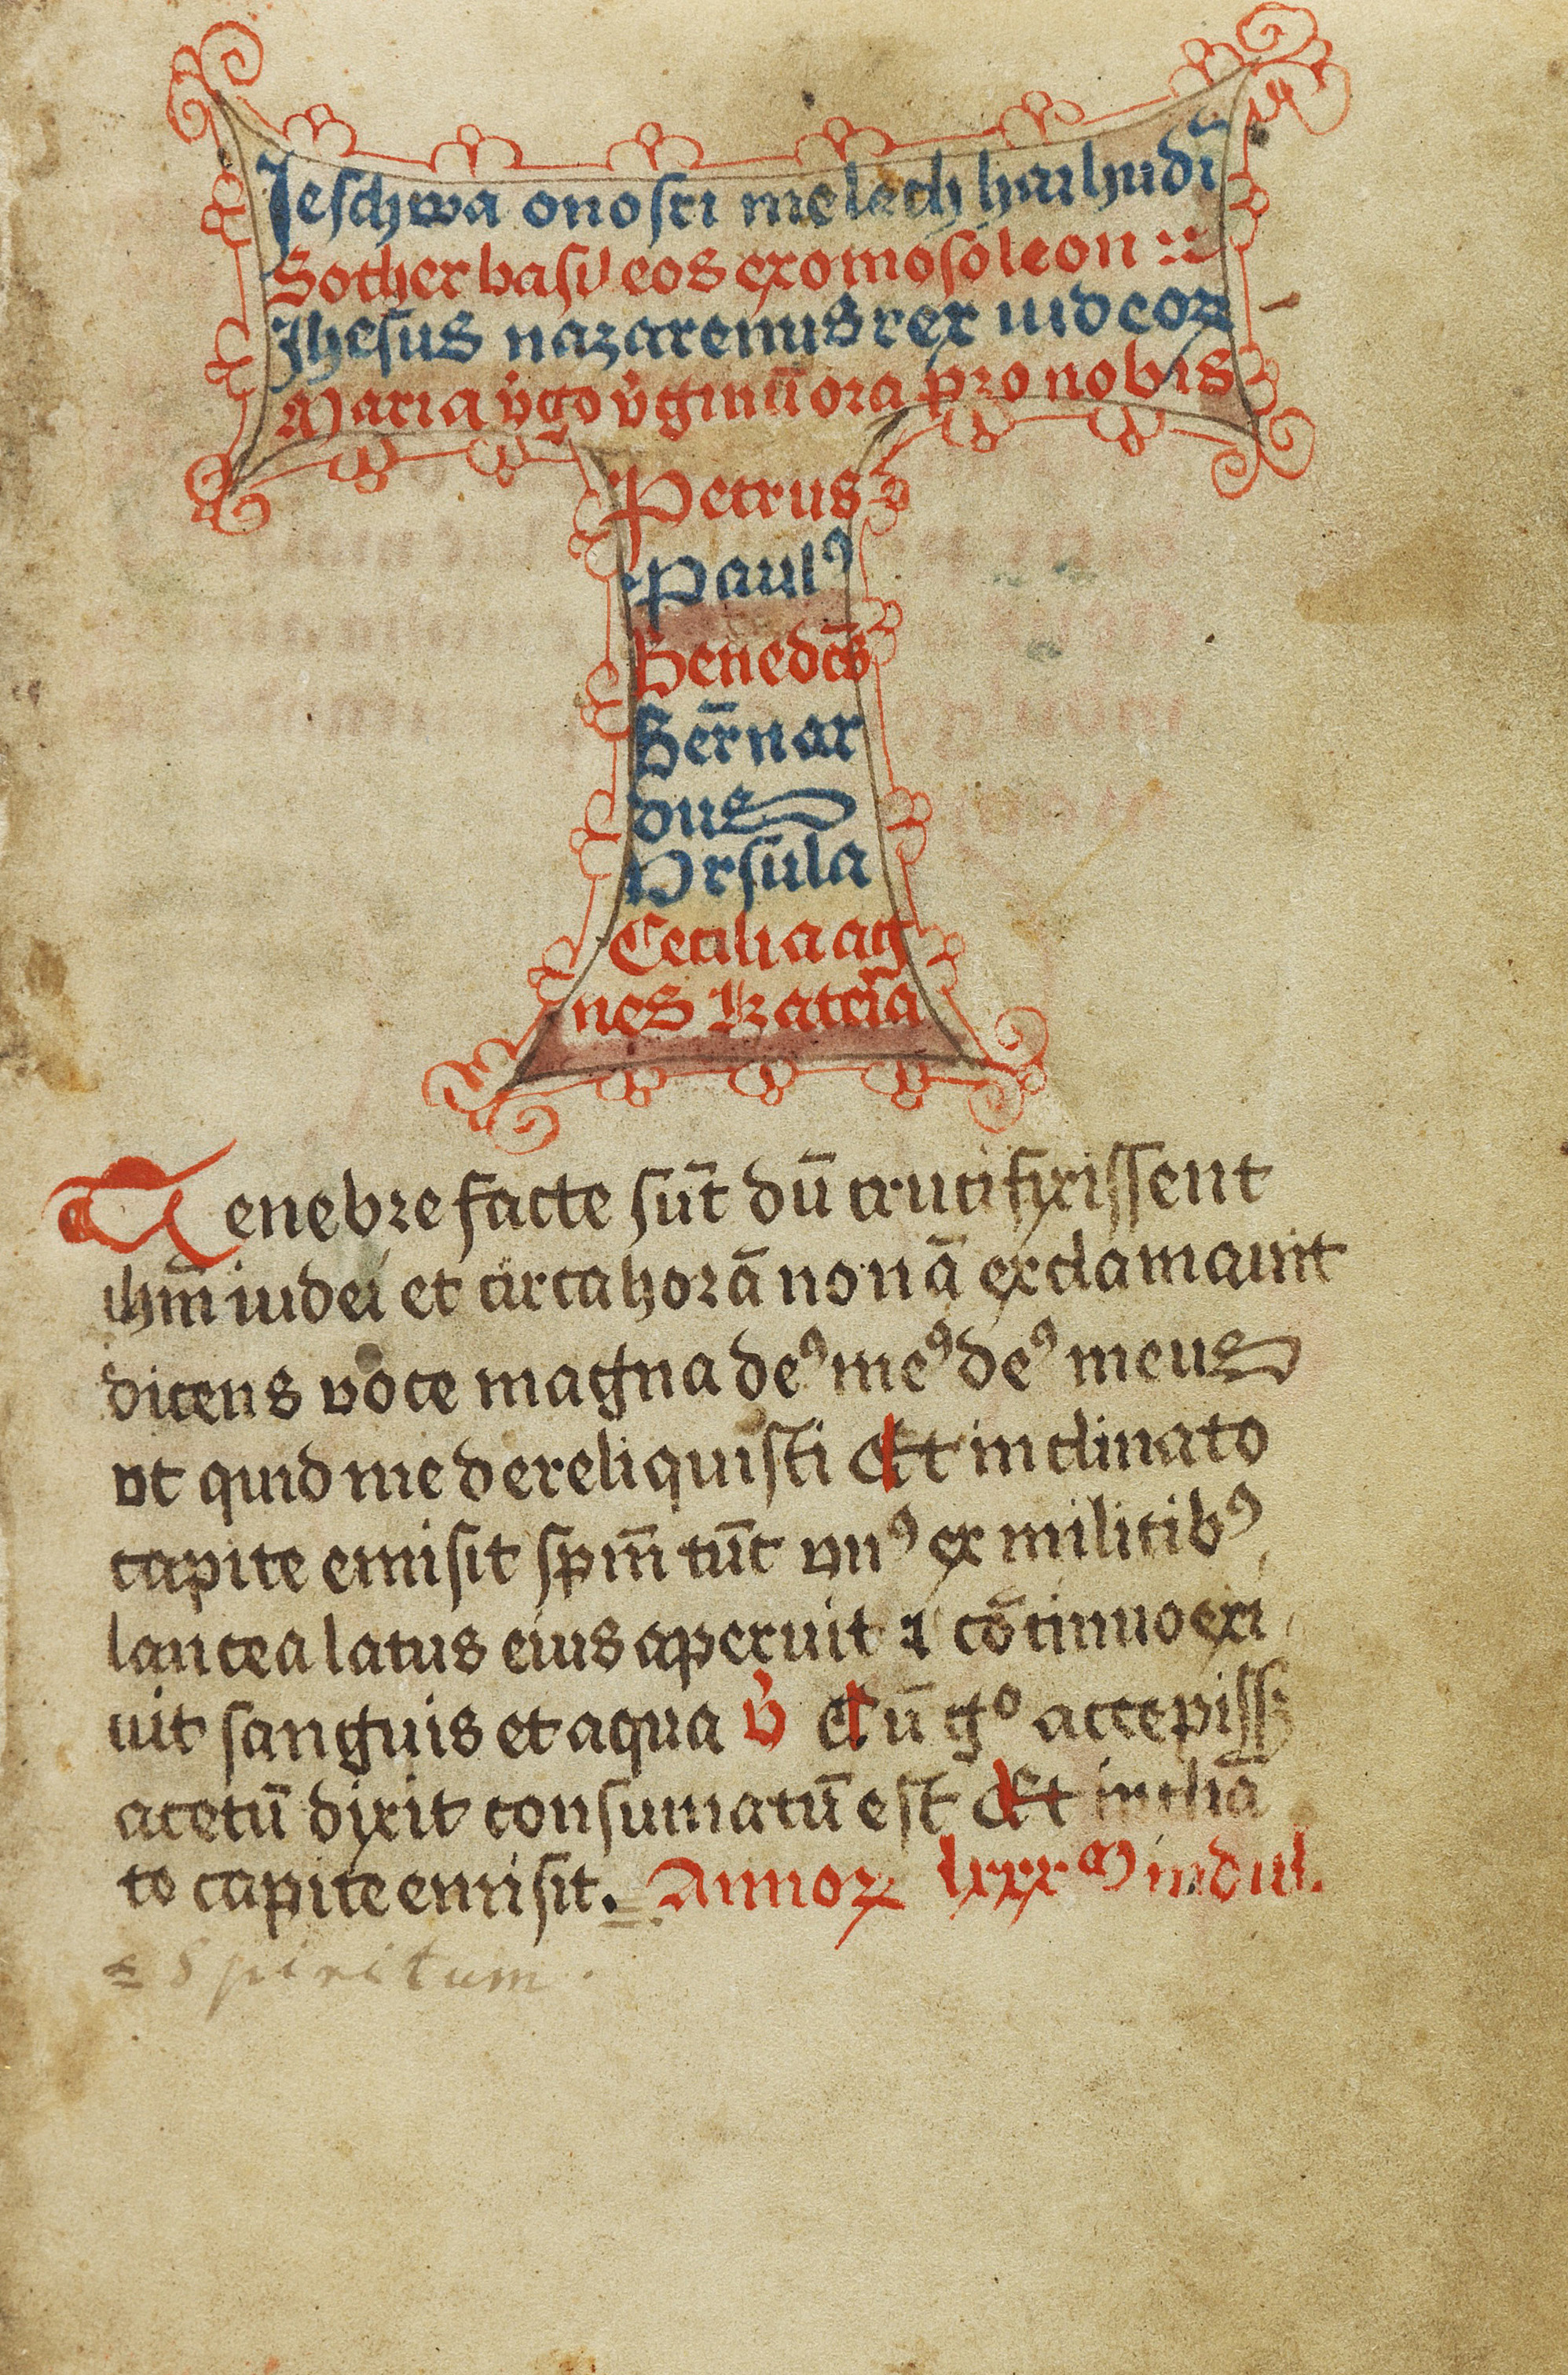 Jeschwa onosri melech haihudĩ
Sother basileos exomosoleon ::
Jhesus nazarenus rex iudeoꝝ
Maria v̉go v̉ginũ ora pro nobis
Petrus
Paulꝰ
Benedc̃s
Ber̃nar
dus
Vrsula
Cecilia ag
nes Kater̃ia
Tenebre facte sũt dũ crucifixissent
ihm̃ iudei et circa horã nonã exclamauit
dicens voce magna deꝰ meꝰ deꝰ meus
vt quid me dereliquisti Et inclinato
capite emisit spm̃ tũc vnꝰ ex militibꝰ
lancea latus eius aperuit ⁊ cõtinuo exi
uit sanguis et aqua v̉ Cũ gͦ accepissꝫ
acetũ dixit consumatũ est Et inclĩa
to capite emisit. Annoꝝ lxxx M indul.
= Spiritum.